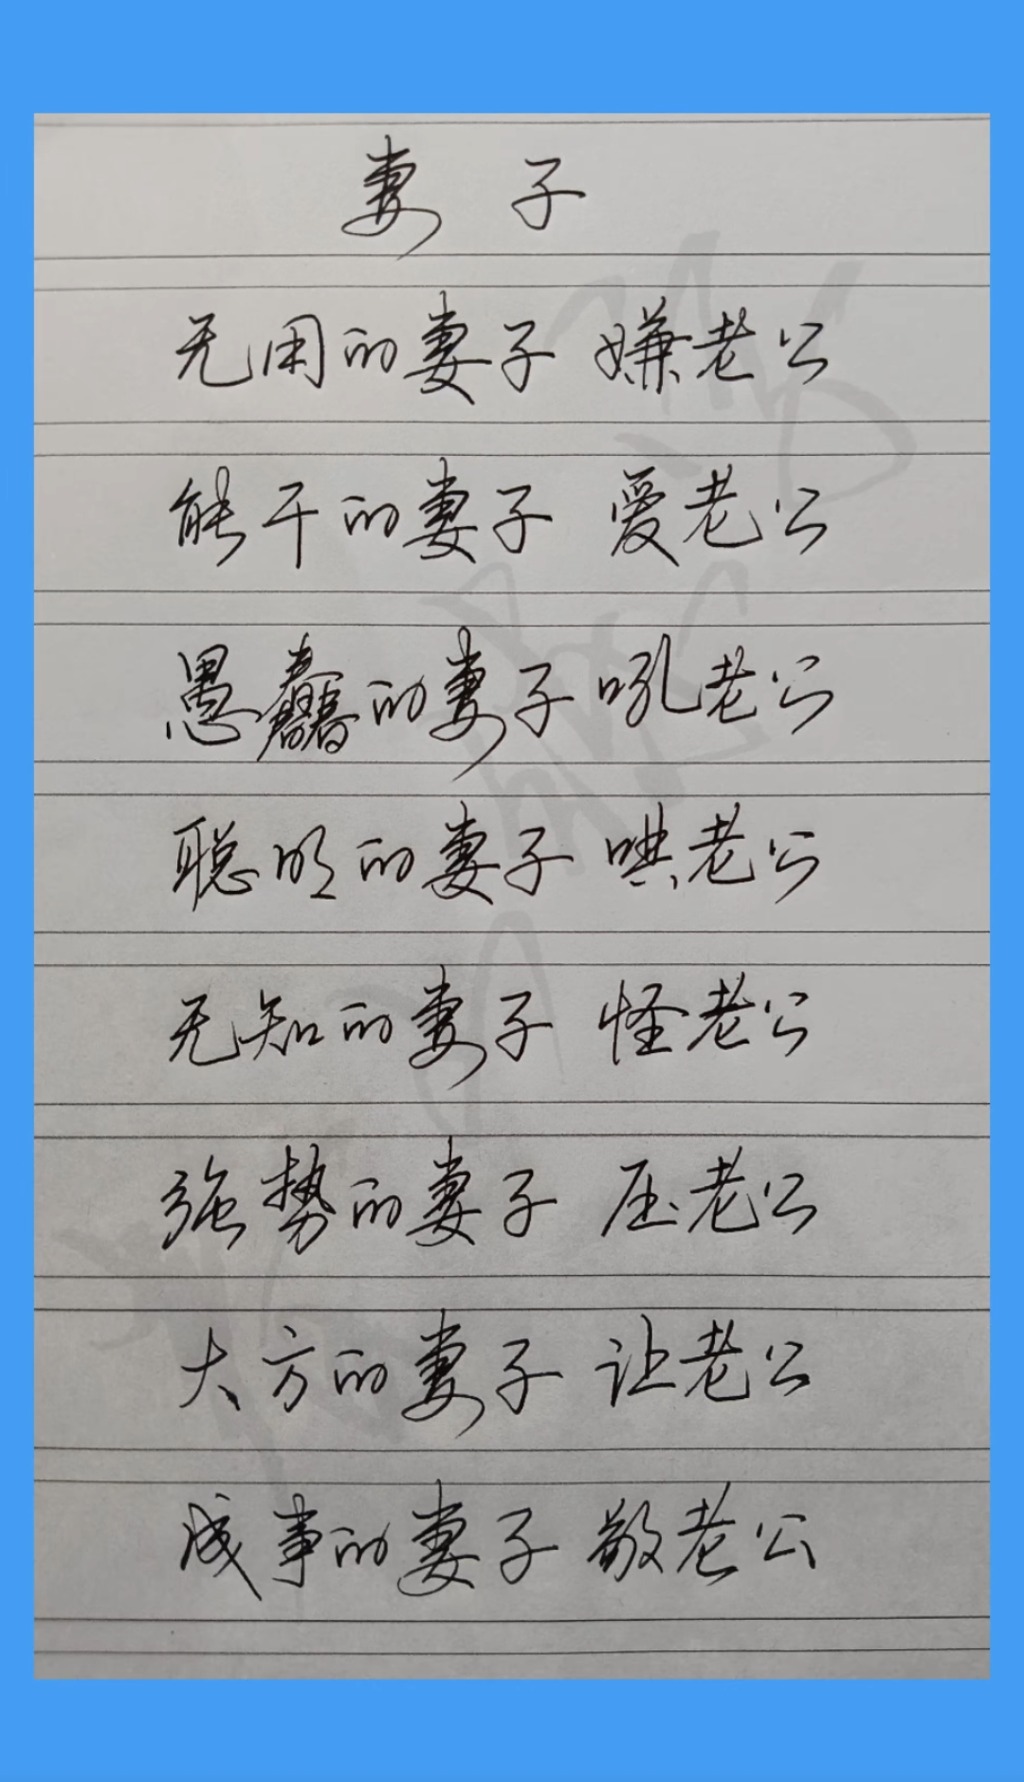 妻子
无用的妻子 嫌老公
能干的妻子 爱老公
愚蠢的妻子吼老公
聪明的妻子 哄老公
无知的妻子 怪老公
强势的妻子 压老公
大方的妻子 让老公
成事的妻子 敬老公